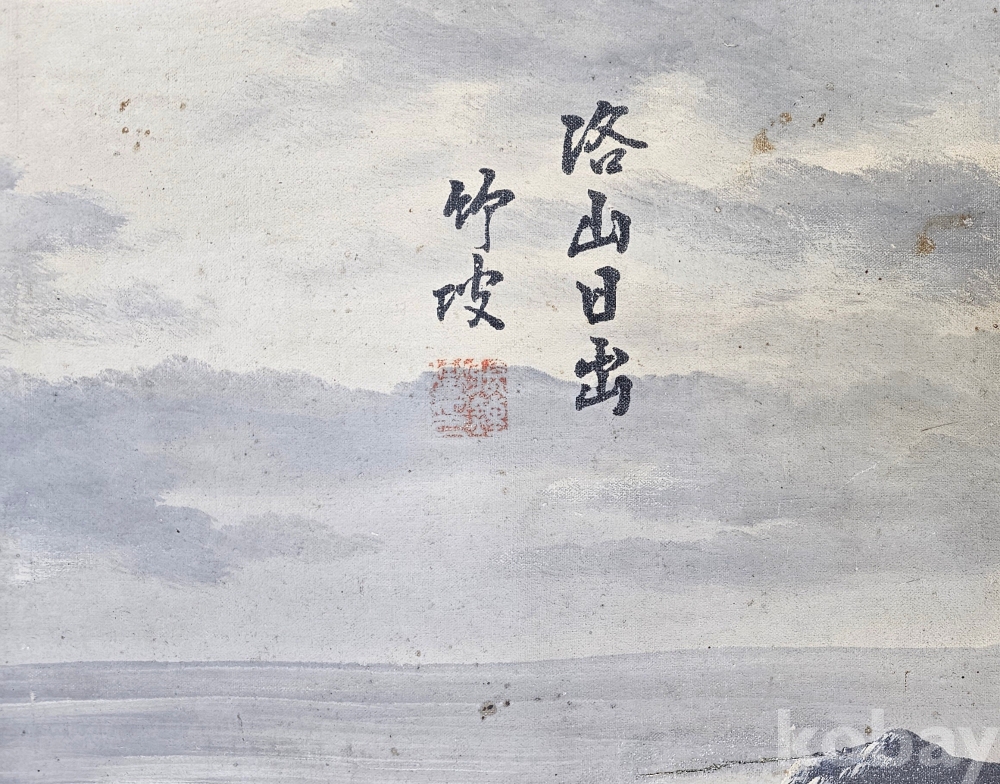 洛山日出
竹坡
kobay